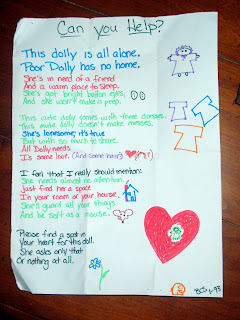 Can you Help?
This dolly is all alone.
Poor Dolly has no home.
She's in need of a friend
And a warm place to sleep.
She's got bright button eyes,
And she won't make a peep.
This cute dolly comes with three dresses.
This mute dolly doesn't make messes.
She's lonesome, it's true
But with so much to share.
All Dolly needs
Is some love. (And some hair?)
I feel that I really should mention:
She needs almost no attention.
Just find her a space
In your room or your house
She'll guard all your things
And be soft as a mouse.
Please find a spot in
Your heart for this doll.
She asks only that
Or nothing at all.